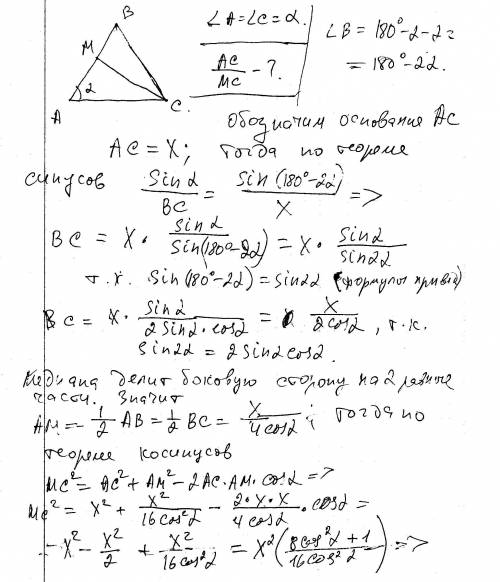 B
M
2
A
C
∠A=∠C=α.
AC/MC - ?
∠B = 180°-2-2=
= 180°-2α.
обозначим основание AC
AC = X; тогда по теореме
синусов sinα/BC = sin(180°-2α)/X =>
BC = X · sinα/sin(180°-2α) = X · sinα/sin2α
т.к. sin(180°-2α) = sin2α (формулы привед)
BC = X · sinα/2sinα·cosα = X/2cosα, т.к.
sin2α = 2sinαcosα.
Медиана делит боковую сторону на 2 равные
части. Значит
AM = 1/2 AB = 1/2 BC = X/4cosα; тогда по
теореме косинусов
MC² = AC² + AM² - 2AC·AM·cosα =>
MC² = X² + X²/16cos²α - 2·X·X/4cosα · cosα =
- X² - X²/2 + X²/16cos²α = X²(8cos²α+1/16cos²α) =>